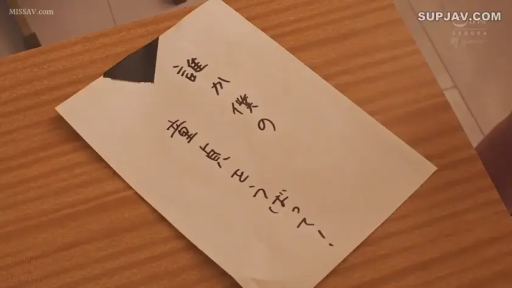 MISSAV.com
SUPJAV.COM
誰か僕の
童貞をうばって!